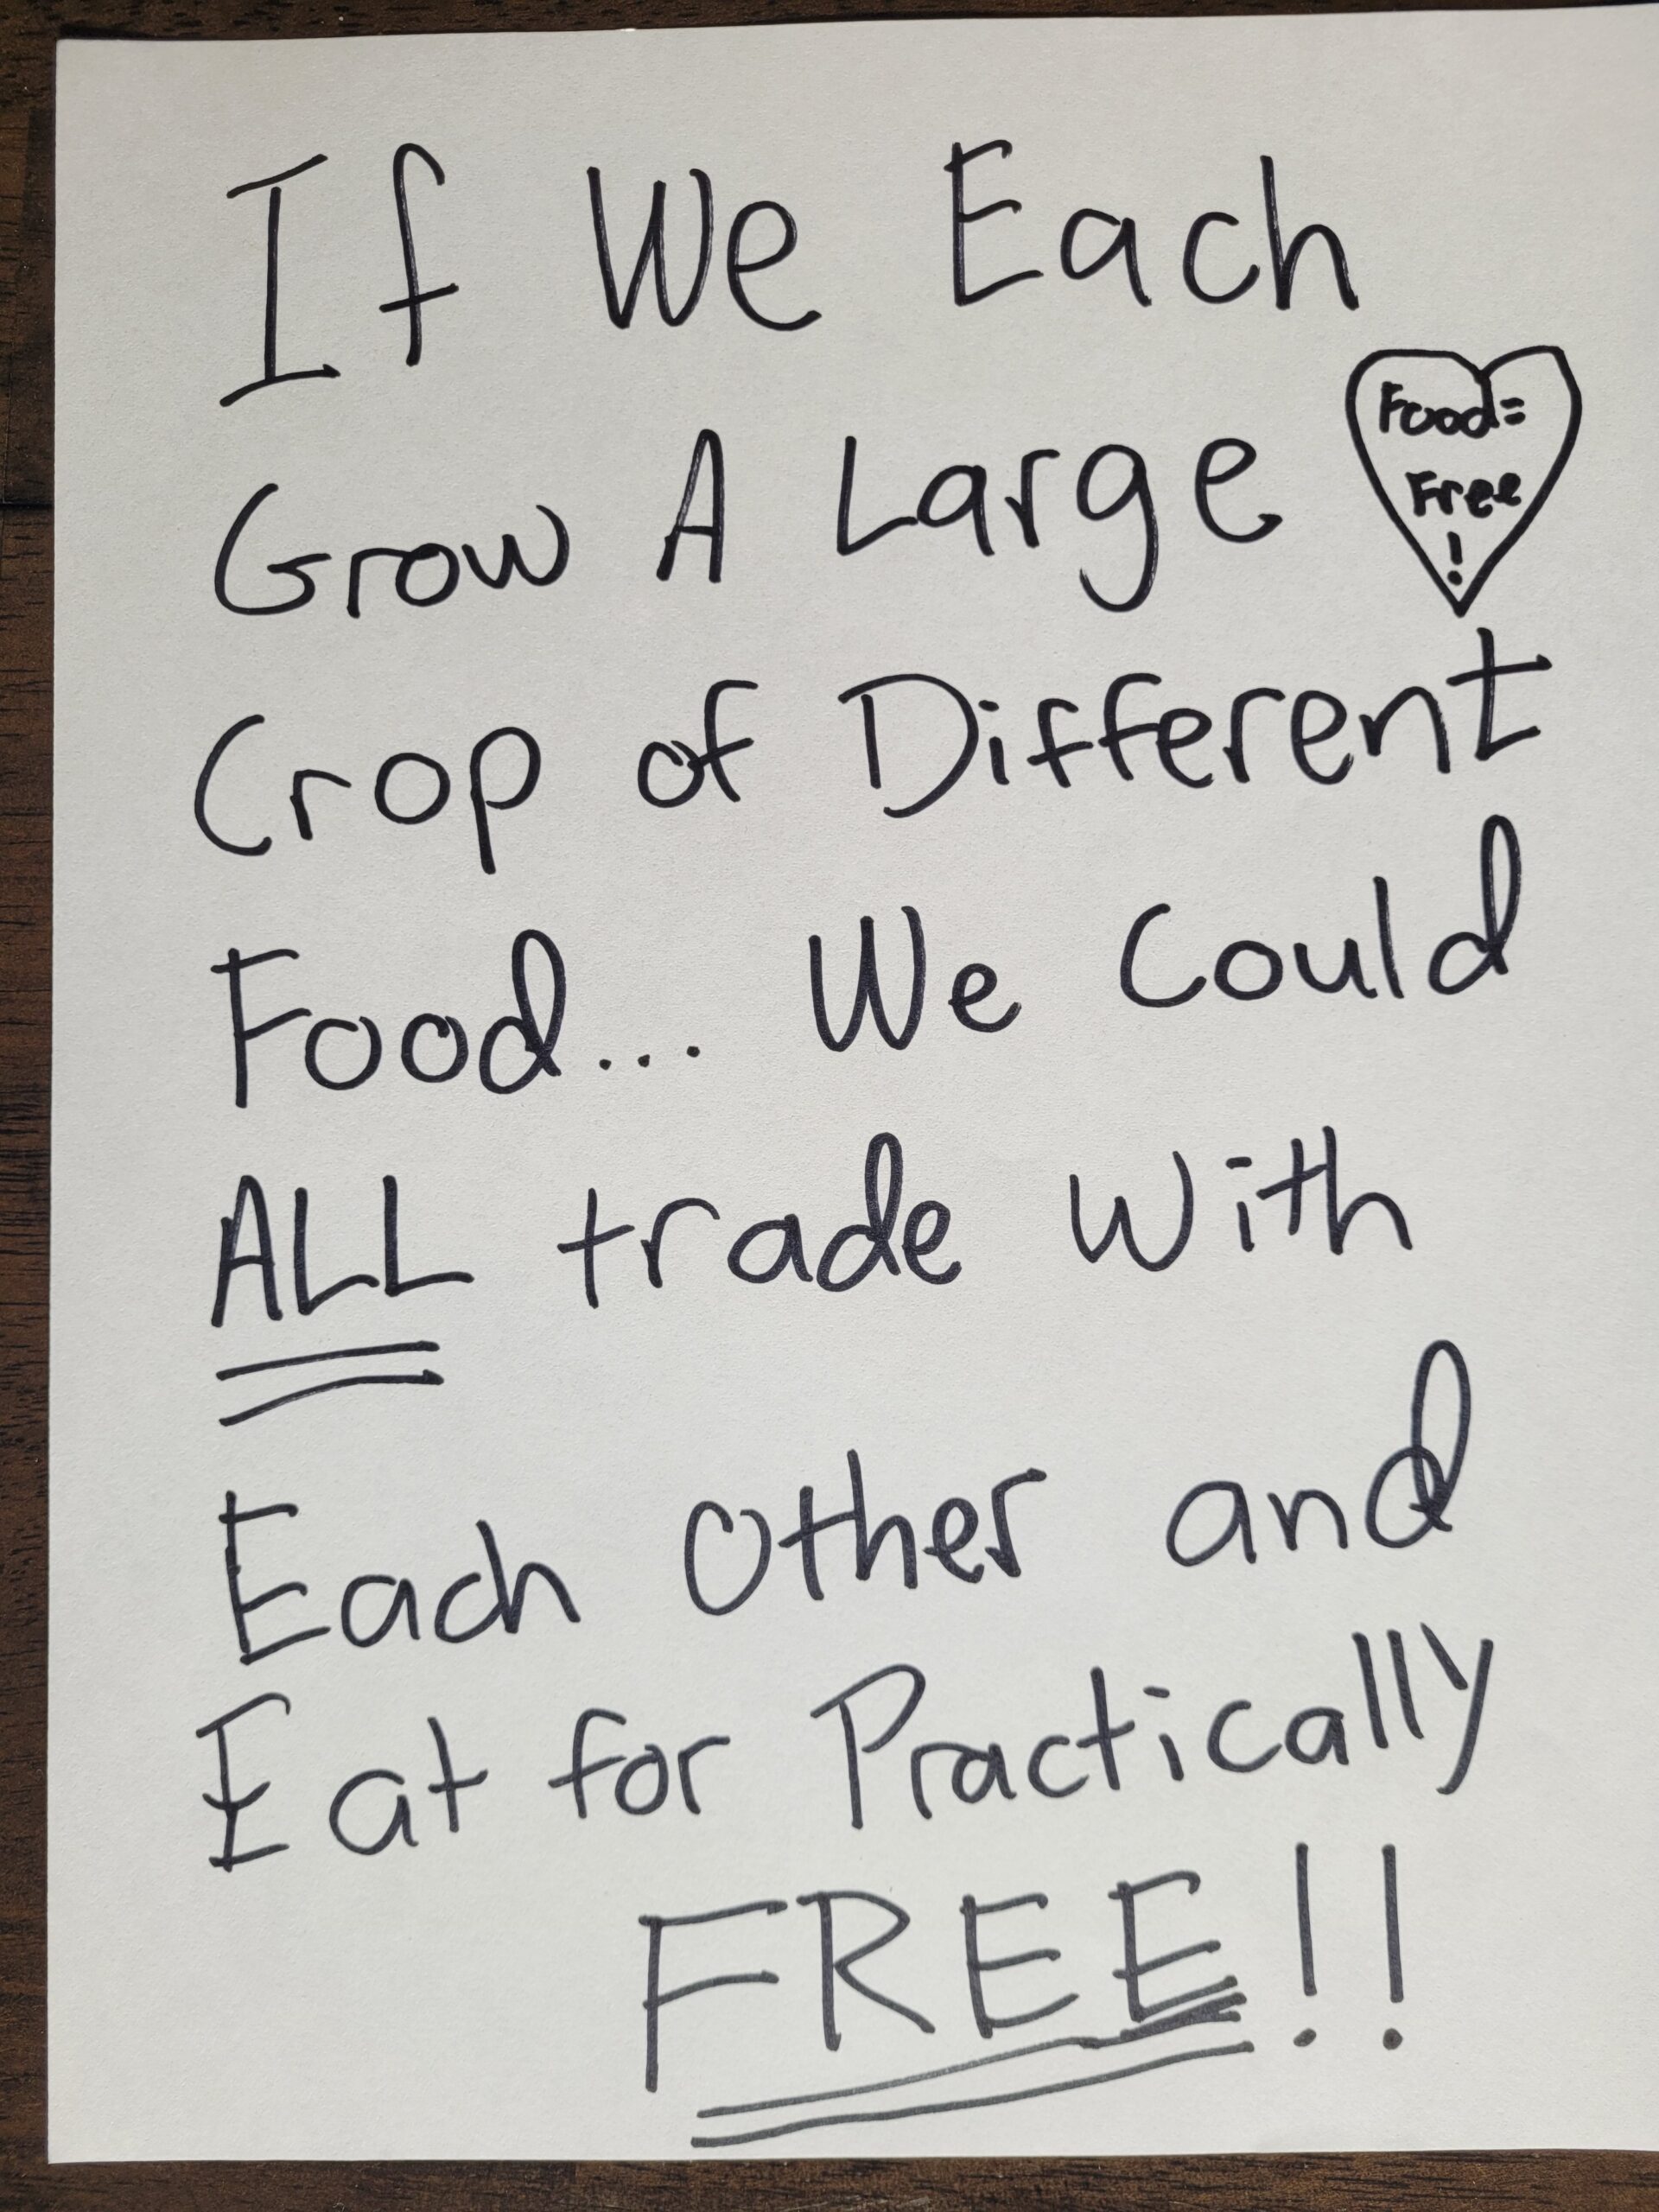 If We Each
Grow A Large
Food=
Free
!
Crop of Different
Food... We Could
ALL trade with
Each Other and
Eat for Practically
FREE!!